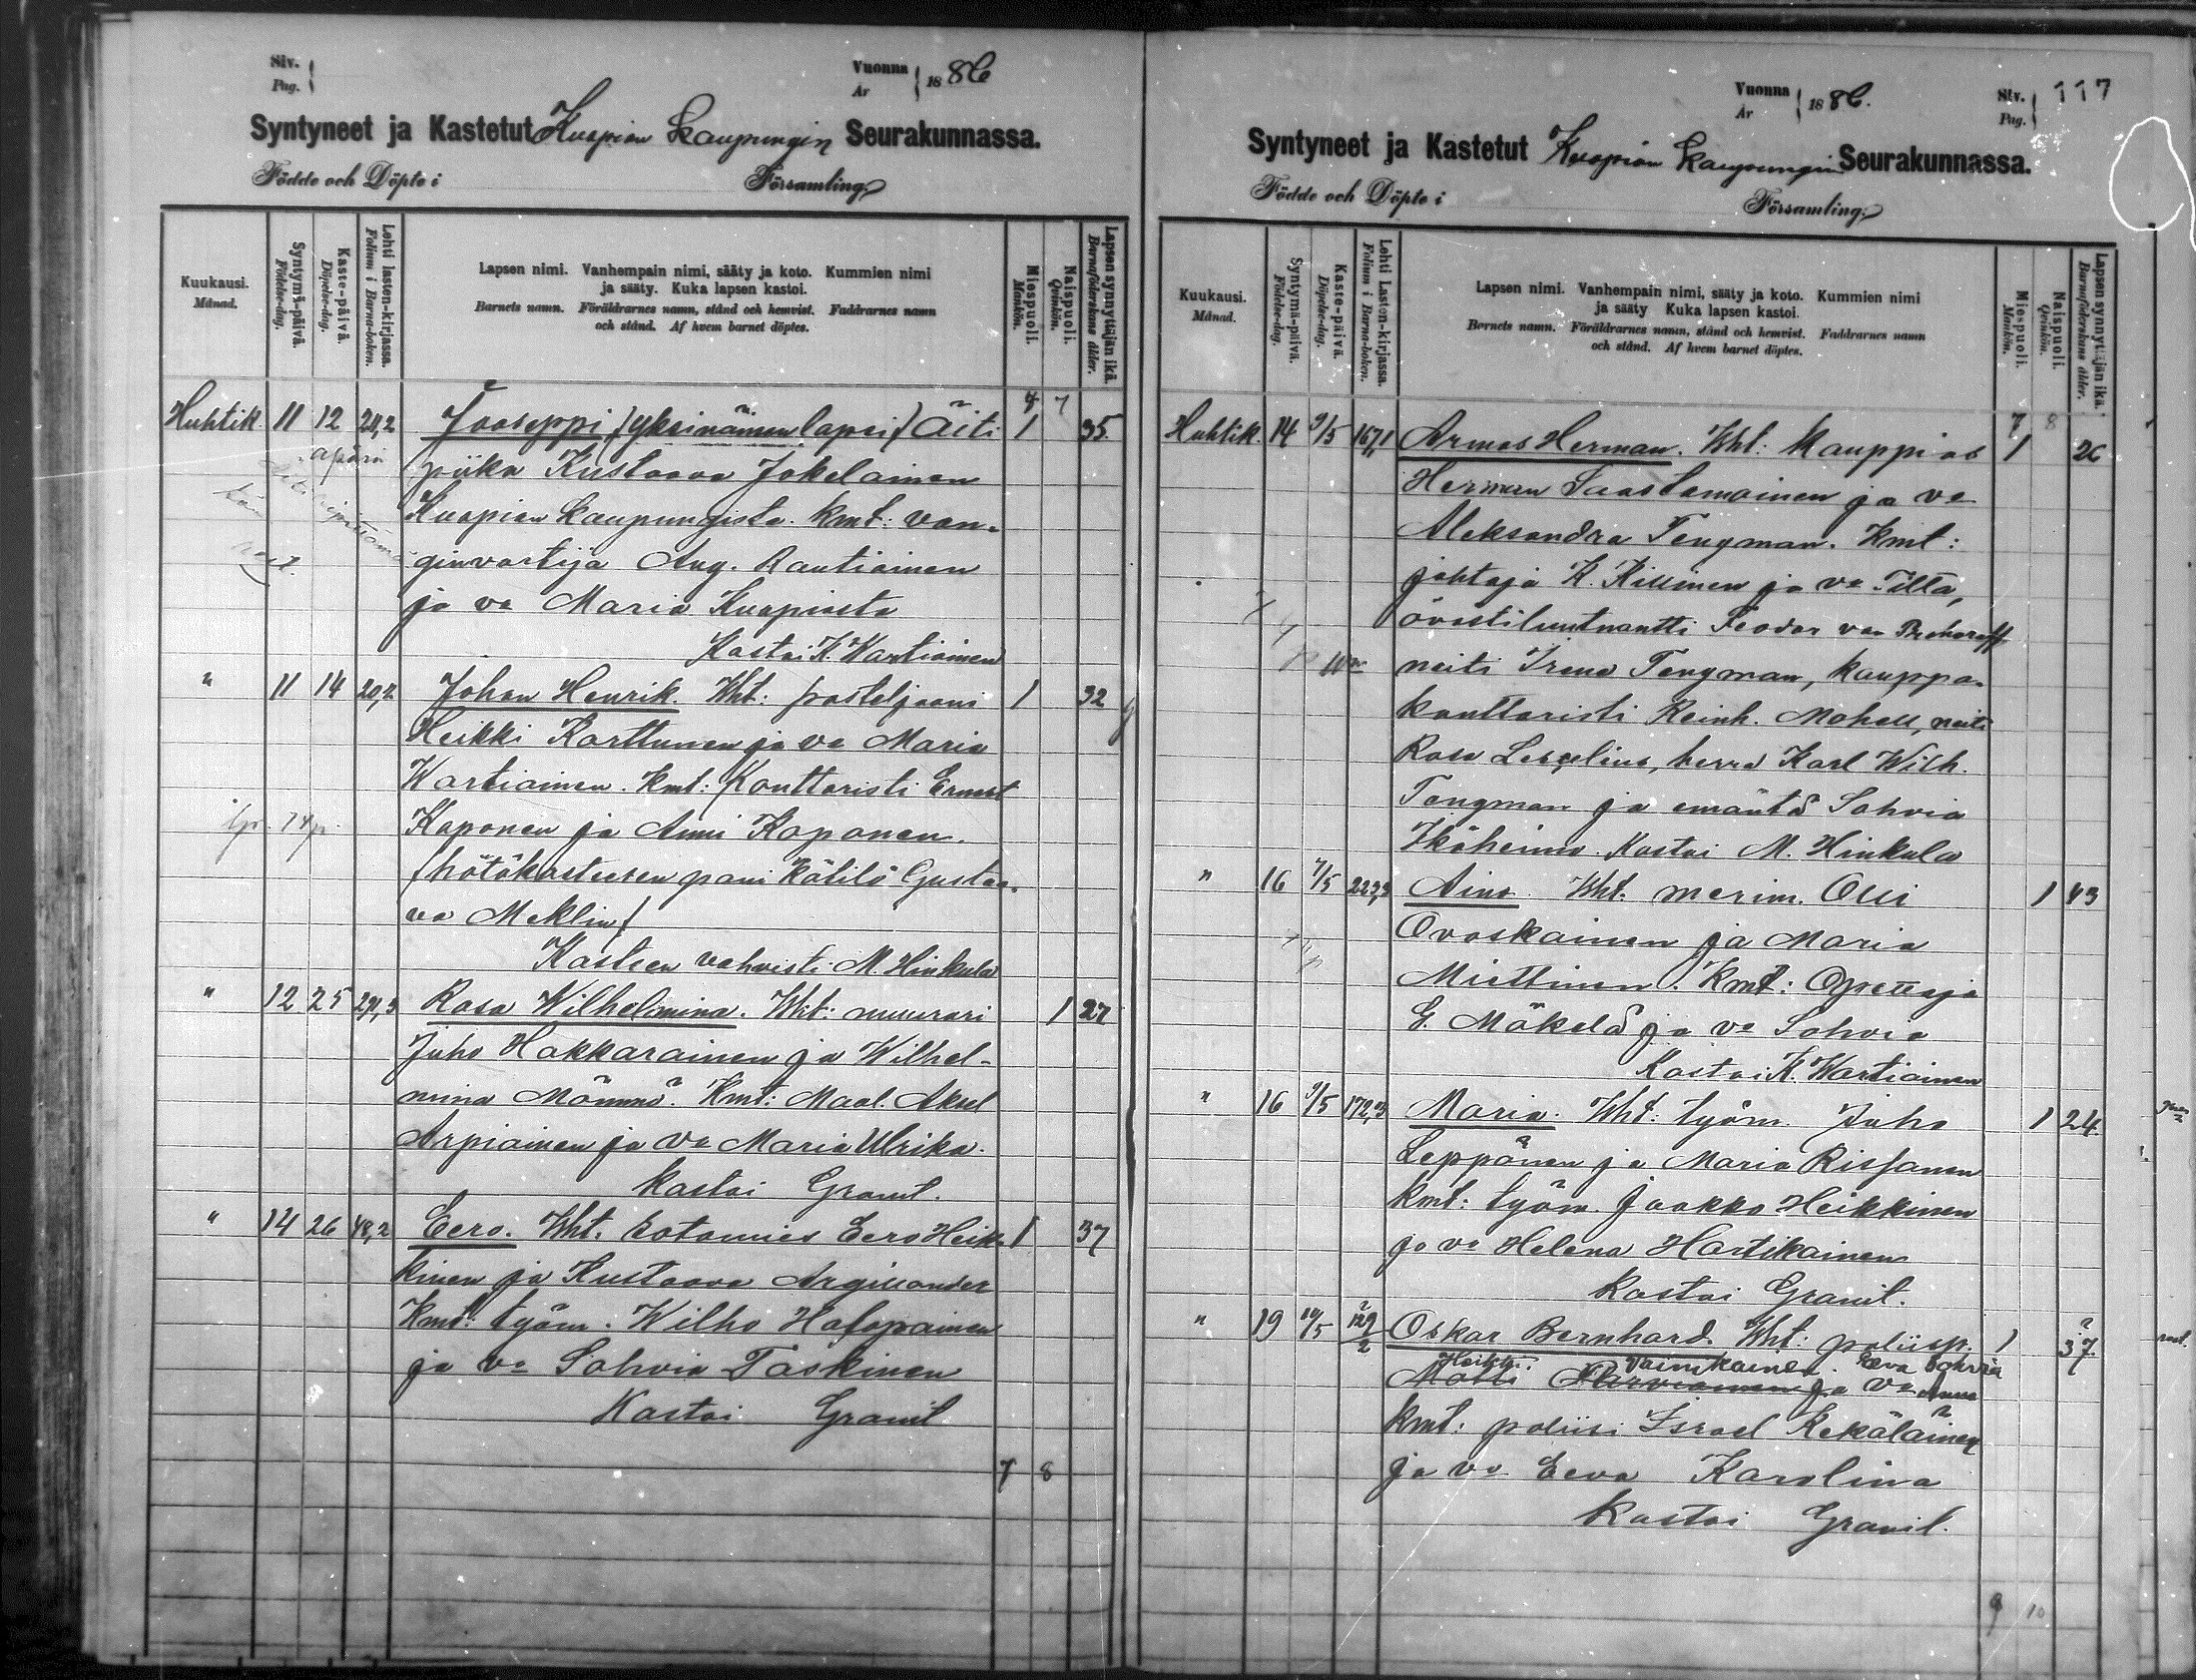 Siv.
Pag.
Vuonna
År
1886
Syntyneet ja Kastetut Kuopion Kaupungin Seurakunnassa.
Födde och Döpte i Församling.
Kuukausi.
Månad.
Syntymä-päivä.
Födelse-dag.
Kaste-päivä.
Döpelse-dag.
Lehti lasten-kirjassa.
Folium i Barna-boken.
Lapsen nimi. Vanhempain nimi, sääty ja koto. Kummien nimi
ja sääty. Kuka lapsen kastoi.
Barnets namn. Föräldrarnes namn, stånd och hemvist. Faddrarnes namn
och stånd. Af hvem barnet döptes.
Miespuoli.
Mankön.
Naispuoli.
Qvinkön.
Lapsen synnyttäjän ikä.
Barnaföderskans ålder.
Huhtik. 11 12 Jooseppi (yksinäinen lapsi) Äiti 1 35.
piika Kustaava Jokelainen
Kuopion Kaupungista. Kmt: van-
ginvartija Aug. Rautiainen
ja va Maria Kuopiosta
Kastoi K. Wartiainen
" 11 14 20,2 Johan Henrik. Wht: posteljooni 1 32
Heikki Karttunen ja va Maria
Wartiainen. Kmt: Konttoristi Ernest
Koponen ja Anni Koponen.
(hätäkasteesen pani Kätilö Gustaa-
va Meklin)
Kasteen vahvisti M. Hinkula
" 12 25 291,3 Rosa Wilhelmina. Wht: muurari 1 27
Juho Hakkarainen ja Wilhel-
mina Mönmö. Kmt: Maal. Aksel
Arpiainen ja va Maria Ulrika.
Kastoi Granit.
" 14 26 48,2 Eero. Wht. sotamies Eero Heik- 1 37
kinen ja Kustaava Argillander
Kmt: työm. Wilho Holopainen
ja va Sohvia Taskinen
Kastoi Granit
7 8
Vuonna
År
1886.
Siv.
Pag.
117
Syntyneet ja Kastetut Kuopion Kaupungin Seurakunnassa.
Födde och Döpte i Församling.
Kuukausi.
Månad.
Syntymä-päivä.
Födelse-dag.
Kaste-päivä.
Döpelse-dag.
Lehti Lasten-kirjassa.
Folium i Barna-boken.
Lapsen nimi. Vanhempain nimi, sääty ja koto. Kummien nimi
ja sääty Kuka lapsen kastoi.
Barnets namn. Föräldrarnes namn, stånd och hemvist. Faddrarnes namn
och stånd. Af hvem barnet döptes.
Miespuoli.
Mankön.
Naispuoli.
Qvinkön.
Lapsen synnyttäjän ikä.
Barnaföderskans ålder.
7 8
Huhtik. 14 9/5 167,1 Armas Herman. Wht: Kauppias 1 26
Herman Saastamoinen ja va
Aleksandra Tengman. Kmt:
johtaja K. Killinen ja va Tilta,
överstiluutnantti Feodor von Prohoroff
neiti Irene Tengman, kauppa-
konttoristi Reinh. Mohell, neiti
Rosa Lescelius, herra Karl Wilh.
Tengman ja emäntä Sohvia
Ikäheimo. Kastoi M. Hinkula
" 16 7/5 223,3 Aino. Wht: merim. Olli 1 43
Ovaskainen ja Maria
Miettinen. Kmt: Opettaja
E. Mäkelä ja va Sohvia
Kastoi K. Wartiainen
" 16 9/5 172,3 Maria. Wht: työm. Juho 1 24.
Leppänen ja Maria Rissanen
Kmt: työm. Jaakko Heikkinen
ja va Helena Hartikainen
Kastoi Granit.
" 19 10/5 129/2 Oskar Bernhard. Wht: poliisp. 1 37.
Heikki Vainikainen. Eeva Sohvia
Matti ja va Anna
Kmt: poliisi Israel Kekäläinen
ja va Eeva Karolina
Kastoi Granit.
9 10